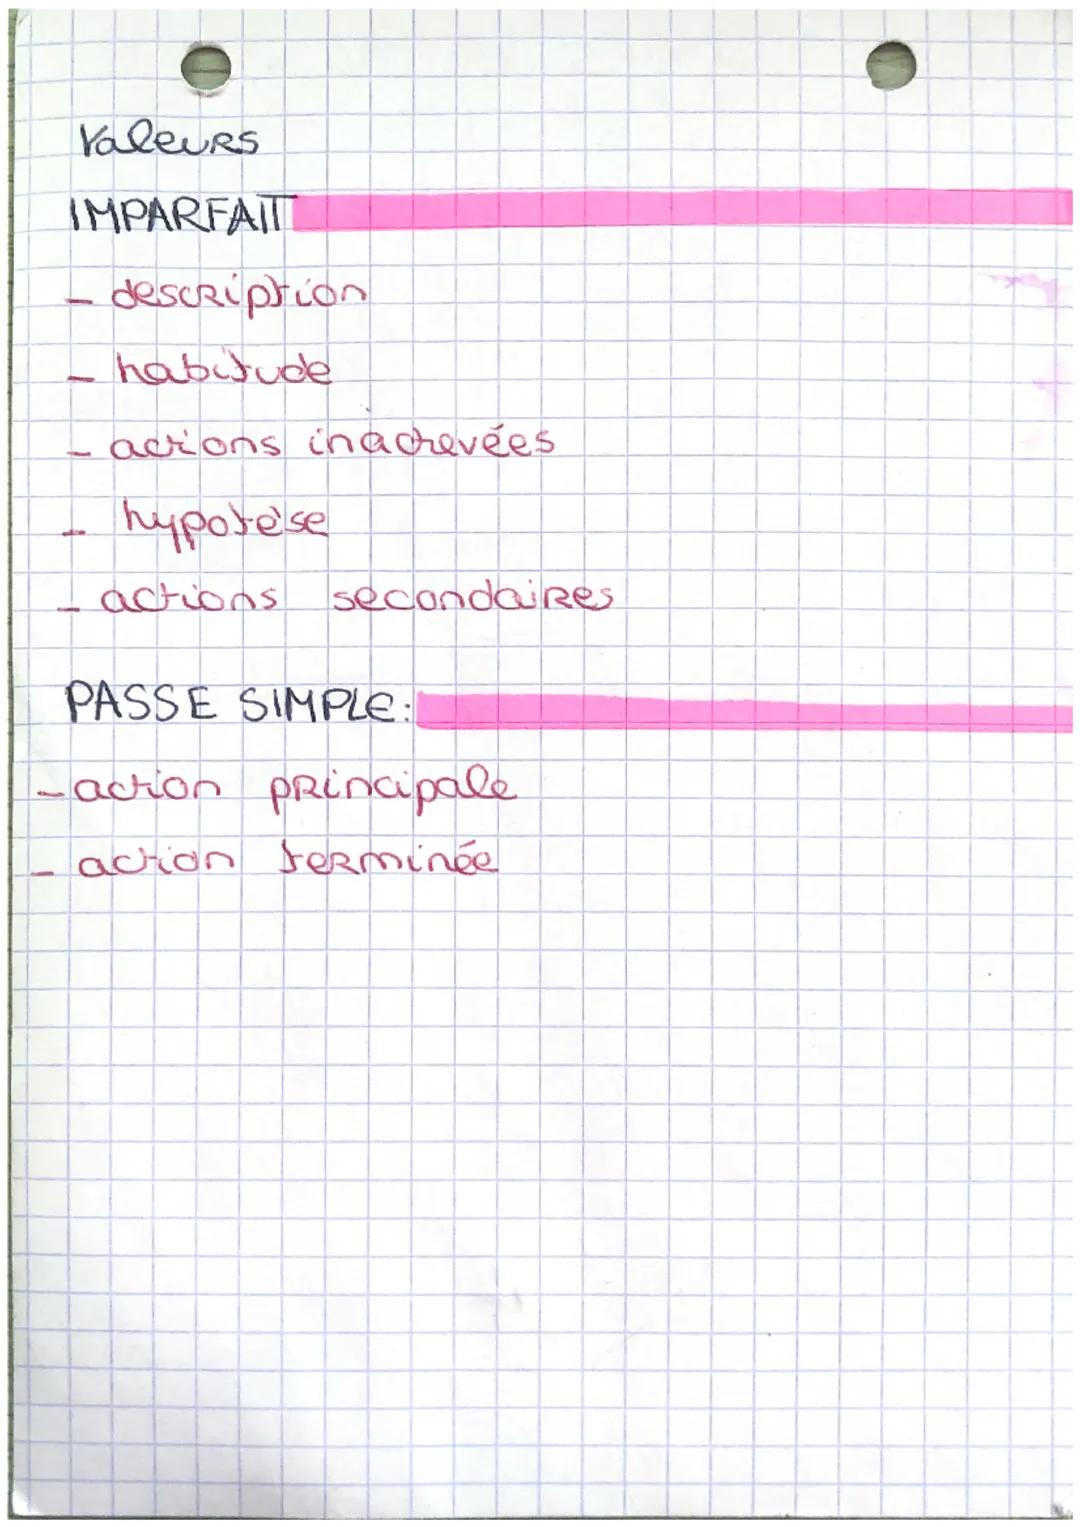 Valeurs
IMPARFAIT
- description
- habitude
- actions inachevées
- hypotèse
- actions secondaires
PASSE SIMPLE:
- action principale
- action terminée